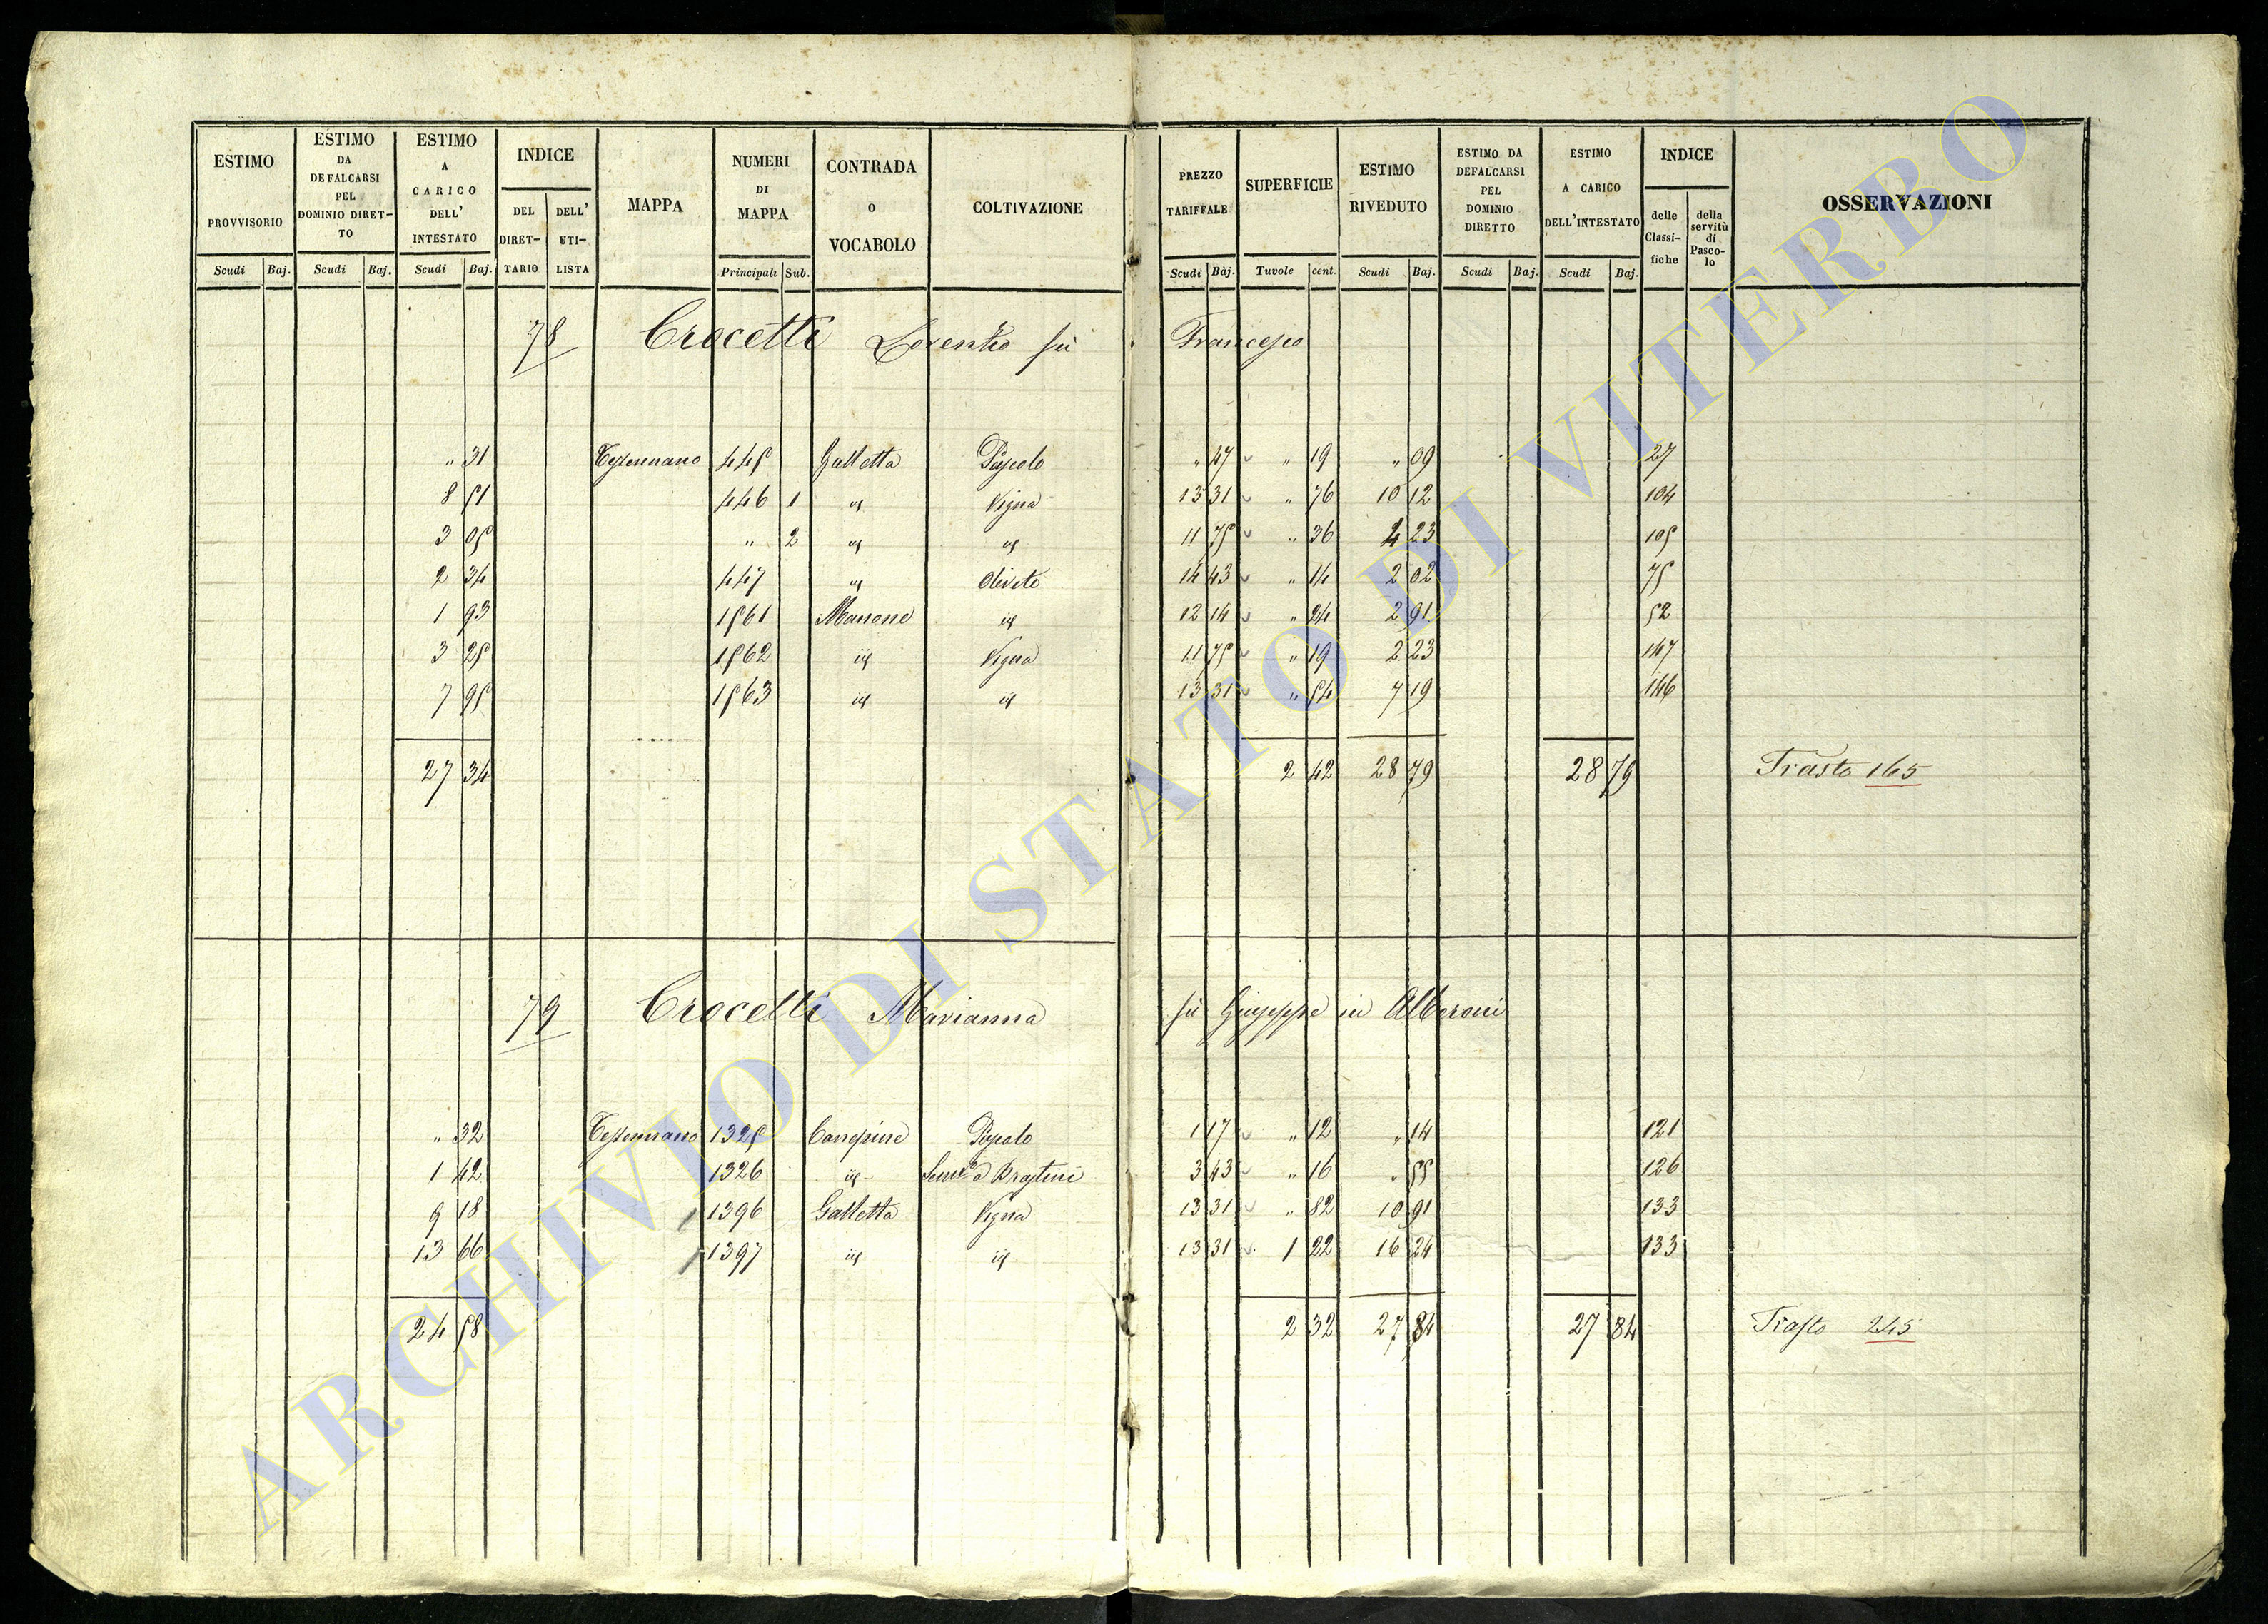 ESTIMO PROVVISORIO
Scudi Baj.
ESTIMO DA DEFALCARSI PEL DOMINIO DIRET-TO
Scudi Baj.
ESTIMO A CARICO DELL' INTESTATO
Scudi Baj.
INDICE
DEL DIRET-TARIO
DELL' UTI-LISTA
MAPPA
NUMERI DI MAPPA
Principali Sub.
CONTRADA O VOCABOLO
COLTIVAZIONE
PREZZO TARIFFALE
Scudi Baj.
SUPERFICIE
Tuvole cent.
ESTIMO RIVEDUTO
Scudi Baj.
ESTIMO DA DEFALCARSI PEL DOMINIO DIRETTO
Scudi Baj.
ESTIMO A CARICO DELL'INTESTATO
Scudi Baj.
INDICE
delle Classi-fiche
della servitù di Pasco-lo
OSSERVAZIONI
78 Crocetti Lorenzo fù Francesco
" 31 Tessennano 445 Galletta Pascolo " 47 " 19 " 09 27
8 51 446 1 id Vigna 13 31 " 76 10 12 104
3 05 " 2 id id 11 75 " 36 4 23 105
2 34 447 id Oliveto 14 43 " 14 2 02 75
1 93 1561 id 12 14 " 24 2 91 52
3 25 1562 id Vigna 11 75 " 19 2 23 147
7 95 1563 id id 13 31 " 54 7 19 146
27 34 2 42 28 79 28 79 Trasto 165
79 Crocetti Marianna fù Giuseppe in Alberoni
" 32 Tessennano 1325 Pascolo 1 17 " 12 " 14 121
1 42 1326 id 3 43 " 16 " 55 126
9 18 1396 Galletta Vigna 13 31 " 82 10 91 133
13 66 1397 id id 13 31 1 22 16 24 133
24 58 2 32 27 84 27 84 Trasto 245
ARCHIVIO DI STATO DI VITERBO